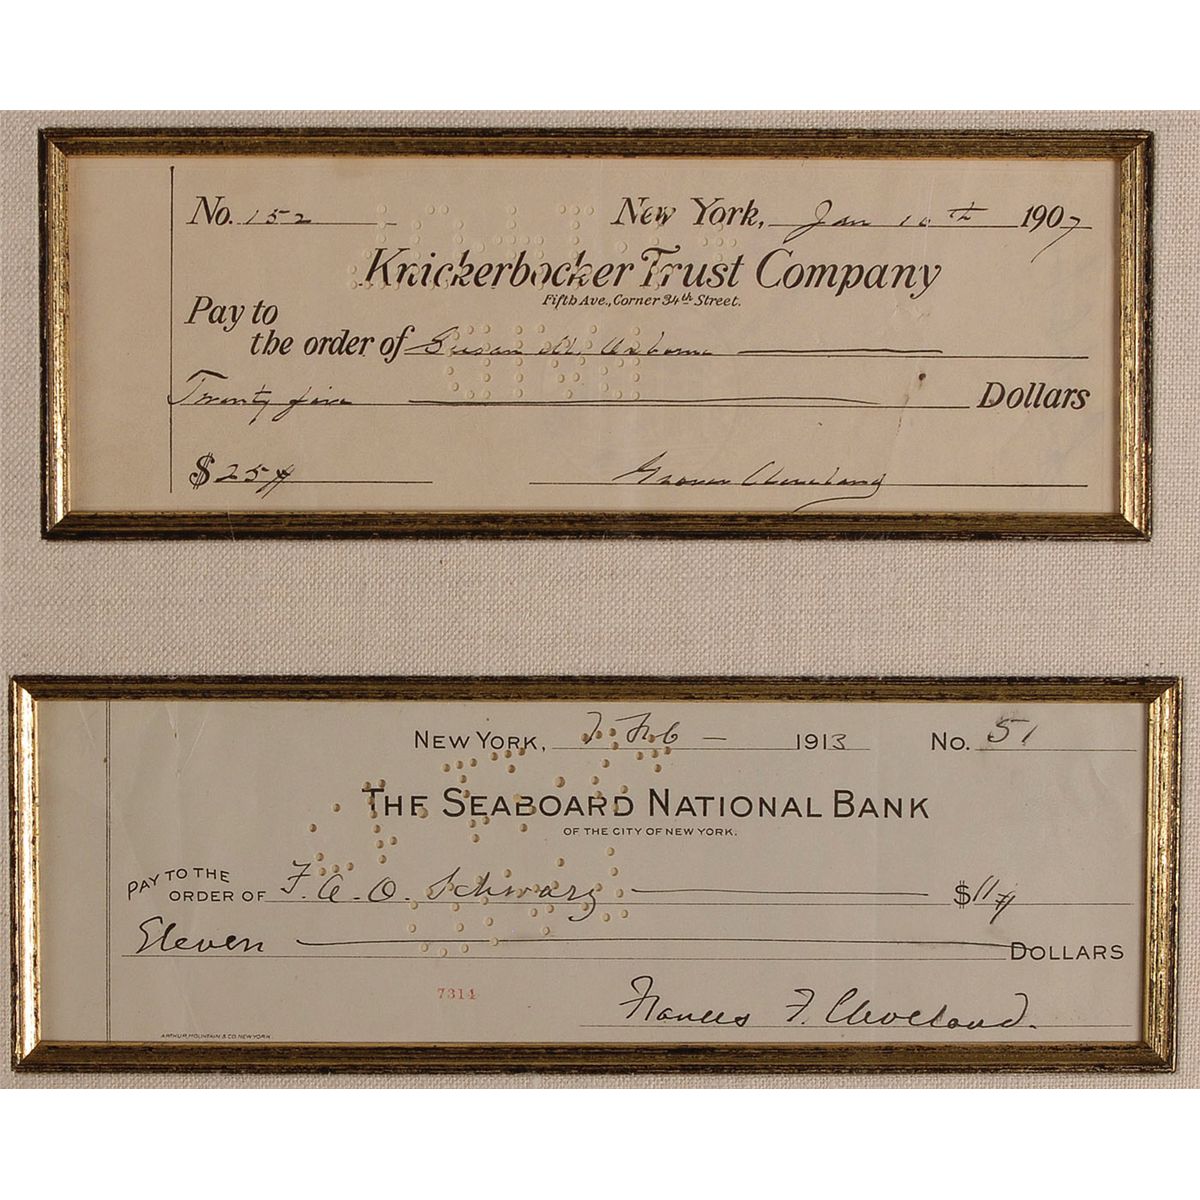 No. 152 New York, Jan 10th 1907
Knickerbocker Trust Company
Fifth Ave., Corner 34th Street.
Pay to
the order of Susan M. Osborne
Twenty five Dollars
$25
Grover Cleveland
NEW YORK, 7 Feb 1913 No. 51
THE SEABOARD NATIONAL BANK
OF THE CITY OF NEW YORK.
PAY TO THE
ORDER OF F. A. O. Schwarz $11
Eleven DOLLARS
7314
Frances F. Cleveland.
ARTHUR, MOUNTAIN & CO. NEW YORK